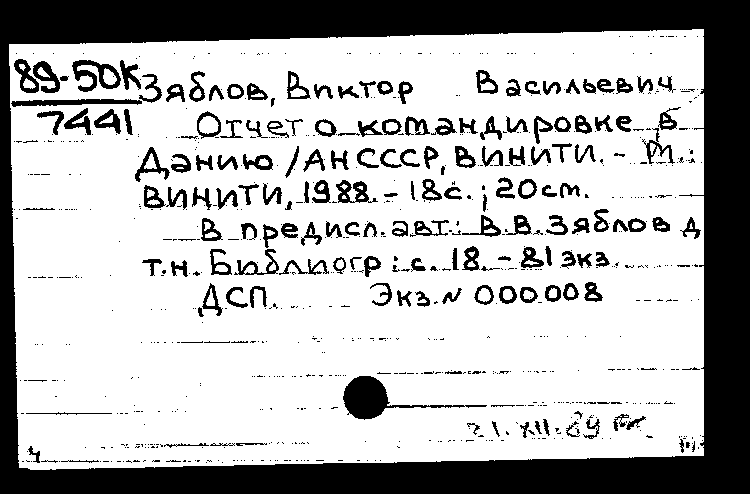 89-50К Зяблов, Виктор Васильевич
7441 Отчет о командировке в
Данию / АН СССР, ВИНИТИ. - М.:
ВИНИТИ, 1988. - 18с.; 20см.
В предисл. авт.: В.В. Зяблов д
т.н. Библиогр: с. 18. - 81 экз.
ДСП. Экз. N 000008
21.XII.89
ч